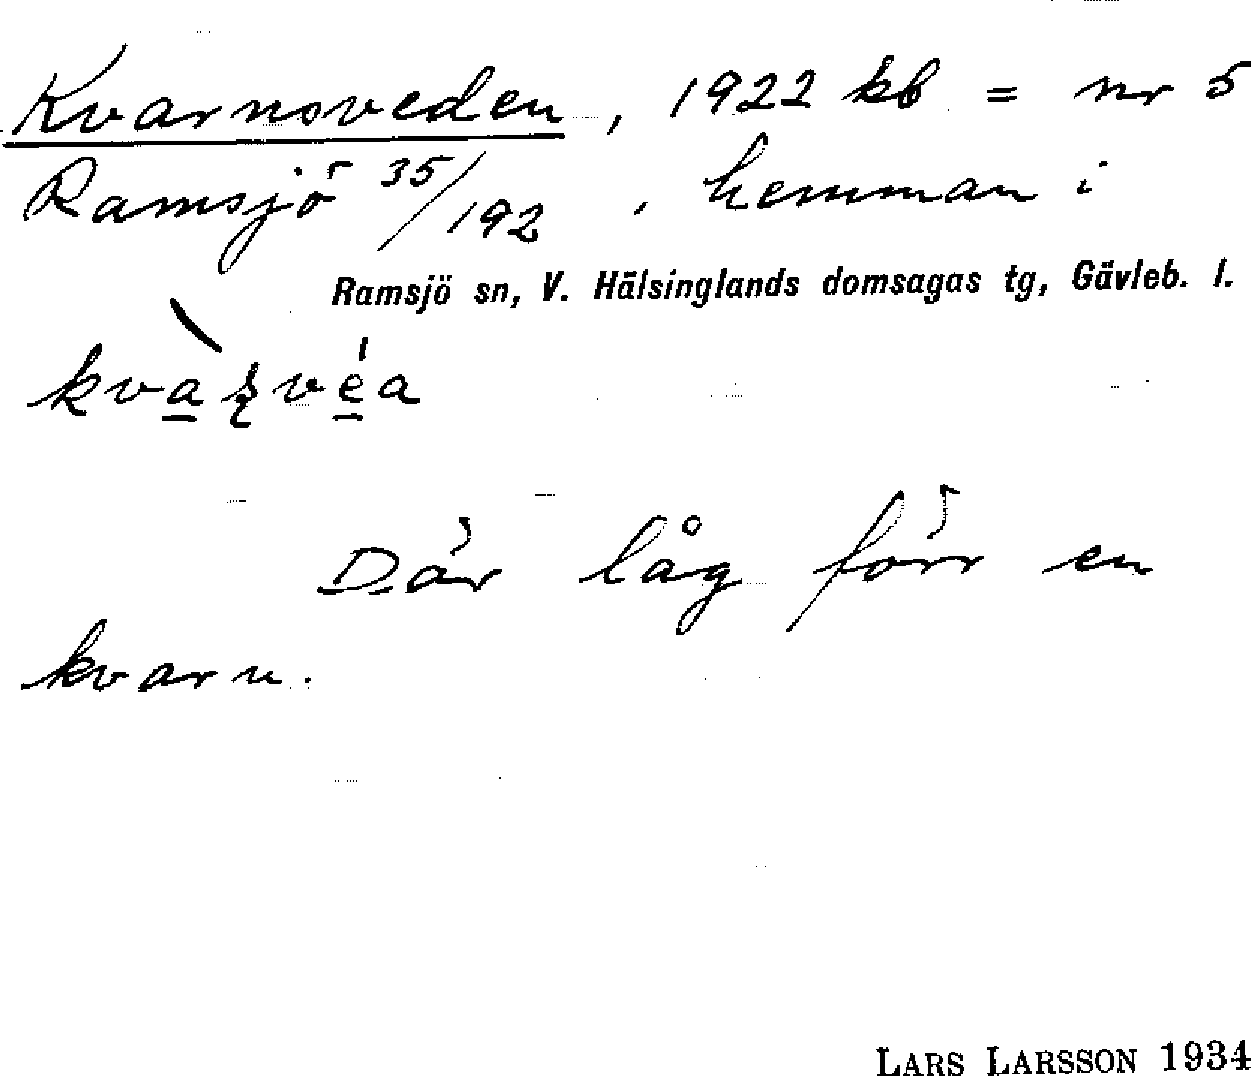 Kvarnsveden, 1922 kb = nr 5
Ramsjö 35/192, hemman i
Ramsjö sn, V. Hälsinglands domsagas tg, Gävleb. l.
Där låg förr en
kvarn.
LARS LARSSON 1934